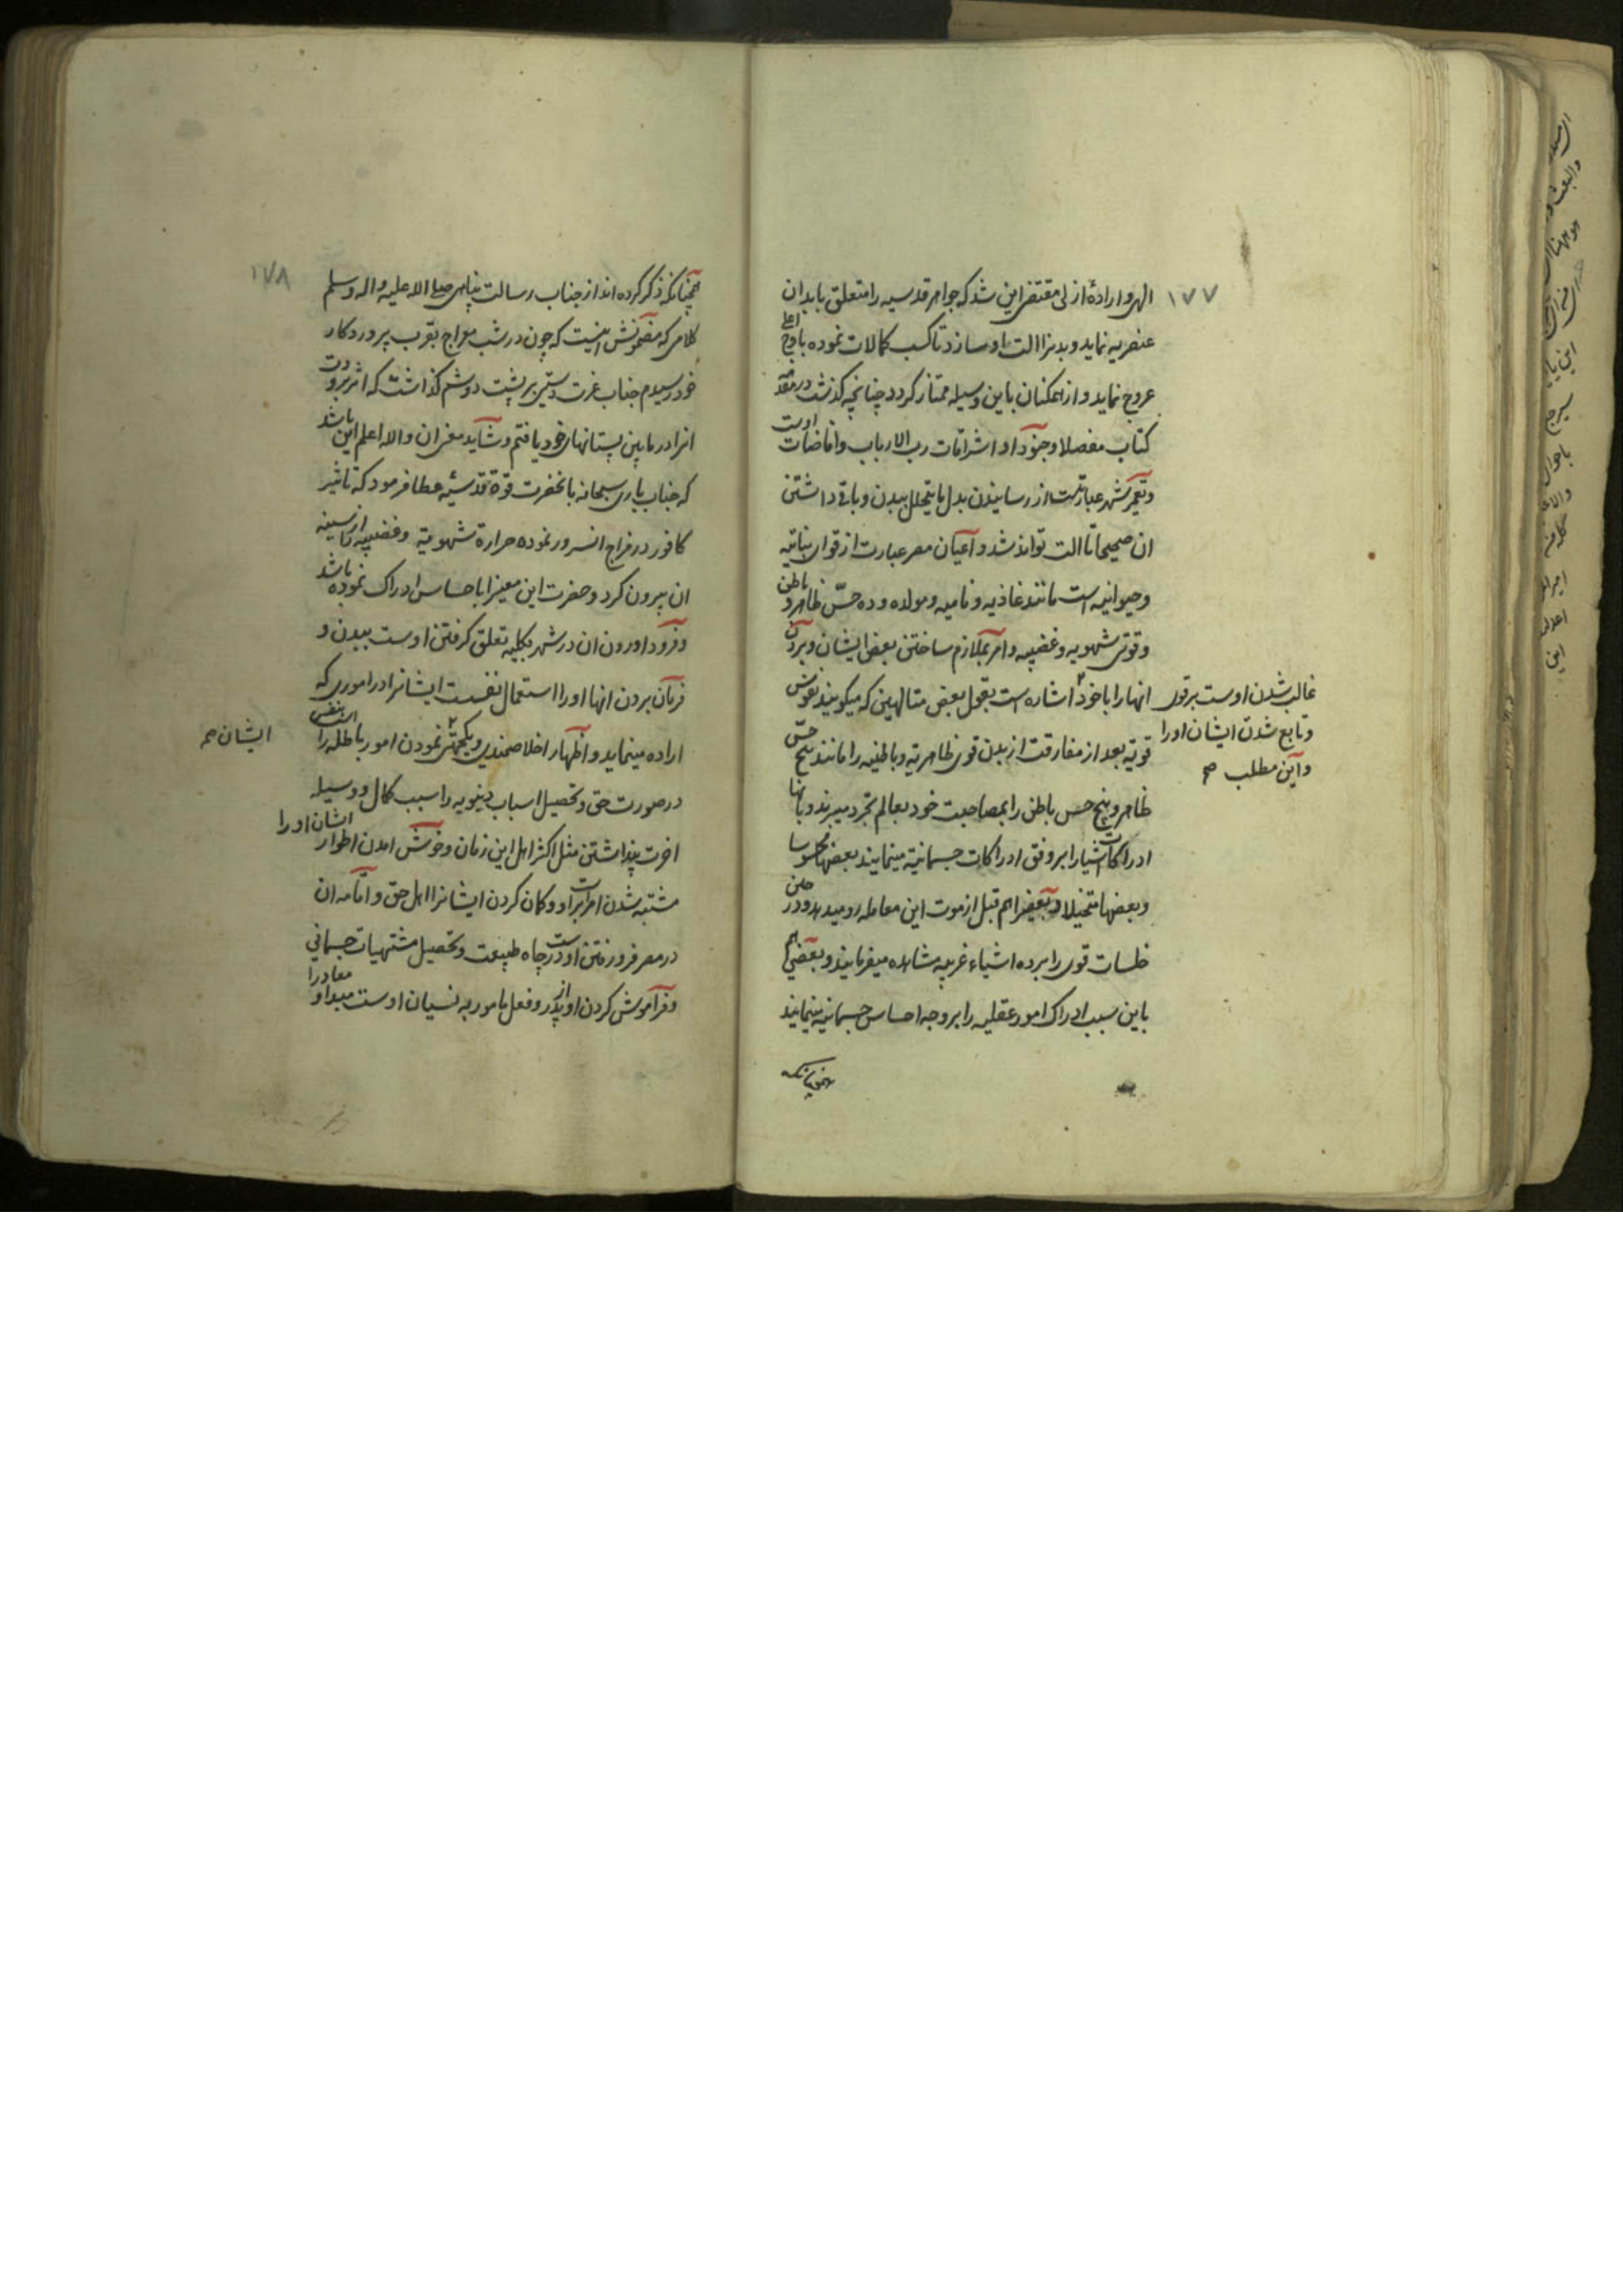 ۱۷۷
الهی و ارادهٔ ازلی مقتضی این شد که جواهر قدسیه را متعلق بابدان
عنصریه نماید و بدنرا الت او سازد تا کسب کمالات نموده باوج اعلی
عروج نماید و از همکنان باین وسیله ممتاز کردد چنانچه کذشت در مقدمه
کتاب مفصلا و جنود او اشراقات رب الارباب و افاضات اوست
و تعمیر شهر عبارتست از رسانیدن بدل ما یتحلل ببدن و باقی داشتن
ان صحیحا تا الت تواند شد و اعیان مصر عبارت از قوای نباتیه
و حیوانیه است مانند غاذیه و نامیه و مولده و ده حسّ ظاهر و باطن
و قوتی شهویه و غضبیه و امر بملازم ساختن بعض ایشان و بردن
انها را با خود اشاره است بقول بعض متالهین که میکویند نفوس
قویّه بعد از مفارقت از بدن قوی ظاهریّه و باطنیه را مانند پنج حسّ
ظاهر و پنج حس باطن را بمصاحبت خود بعالم تجرد میبرند و بانها
ادراکات اشیا را بر وفق ادراکات جسمانیّة مینمایند بعضها محسوسا
و بعضها متخیلا و بعضیرا هم قبل از موت این معامله رو میدهد و در حین
خلسات قوی را برده اشیاء غریبه مشاهده میفرمایند و بعضی هم
باین سبب ادراک امور عقلیه را بر وجه احساس جسمانیه مینمایند
همچنانکه
غالب شدن اوست بر قوی
و تابع شدن ایشان او را
و این مطلب صح
۱۷۸
همچنانکه ذکر کرده اند از جناب رسالت پناهی صلی الله علیه و اله وسلم
کلامی که مضمونش اینست که چون در شب معراج بقرب پروردکار
خود رسیدم جناب عزت دستی بر پشت دوشم کذاشت که اثر برودت
انرا در مابین پستانهای خود یافتم و شاید مغز ان والله اعلم این باشد
که جناب باری سبحانه بانحضرت قوة قدسیّه عطا فرمود که تاثیر
کافور در مزاج انسرور نموده حرارة شهویّة و غضبیه را از سینه
ان بیرون کرد و حضرت این معنیرا باحساس ادراک نموده باشد
و فرود اوردن ان در شهر بکلیه تعلق کرفتن اوست ببدن و
فرمان بردن انها او را استعمال نفست ایشانرا در اموری که
اراده مینماید و اظهار اخلاصمندی و یکجهتی نمودن امور باطله را است بنفس
در صورت حق و تحصیل اسباب دنیویه را سبب کمال و وسیله
اخرت پنداشتن مثل اکثر اهل این زمان و خوش امدن اطوار ایشان او را
مشتبه شدن امر است بر او و کمان کردن ایشانرا اهل حق و اقامه ان
در مصر فرو رفتن اوست در چاه طبیعت و تحصیل مشتهیات جسمانی
و فراموش کردن او از پدر و فعل مامور به نسیان اوست مبدا و معاد را
ایشان صح